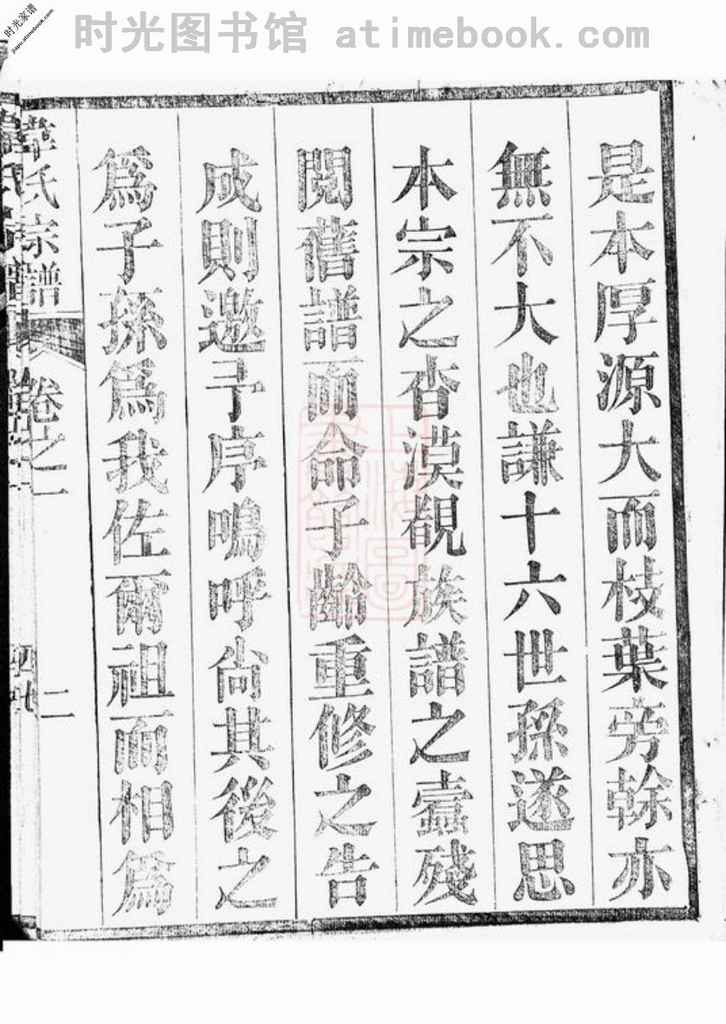 时光图书馆 atimebook.com
时光家谱
jiapu.atimebook.com
是本厚源大而枝葉旁榦亦
無不大也謙十六世孫遂思
本宗之杳漠覩族譜之蠹殘
閱舊譜而命子齡重修之告
成則邀予序嗚呼尙其後之
爲子孫爲我佐爾祖而相爲
氏宗譜 卷之一 二